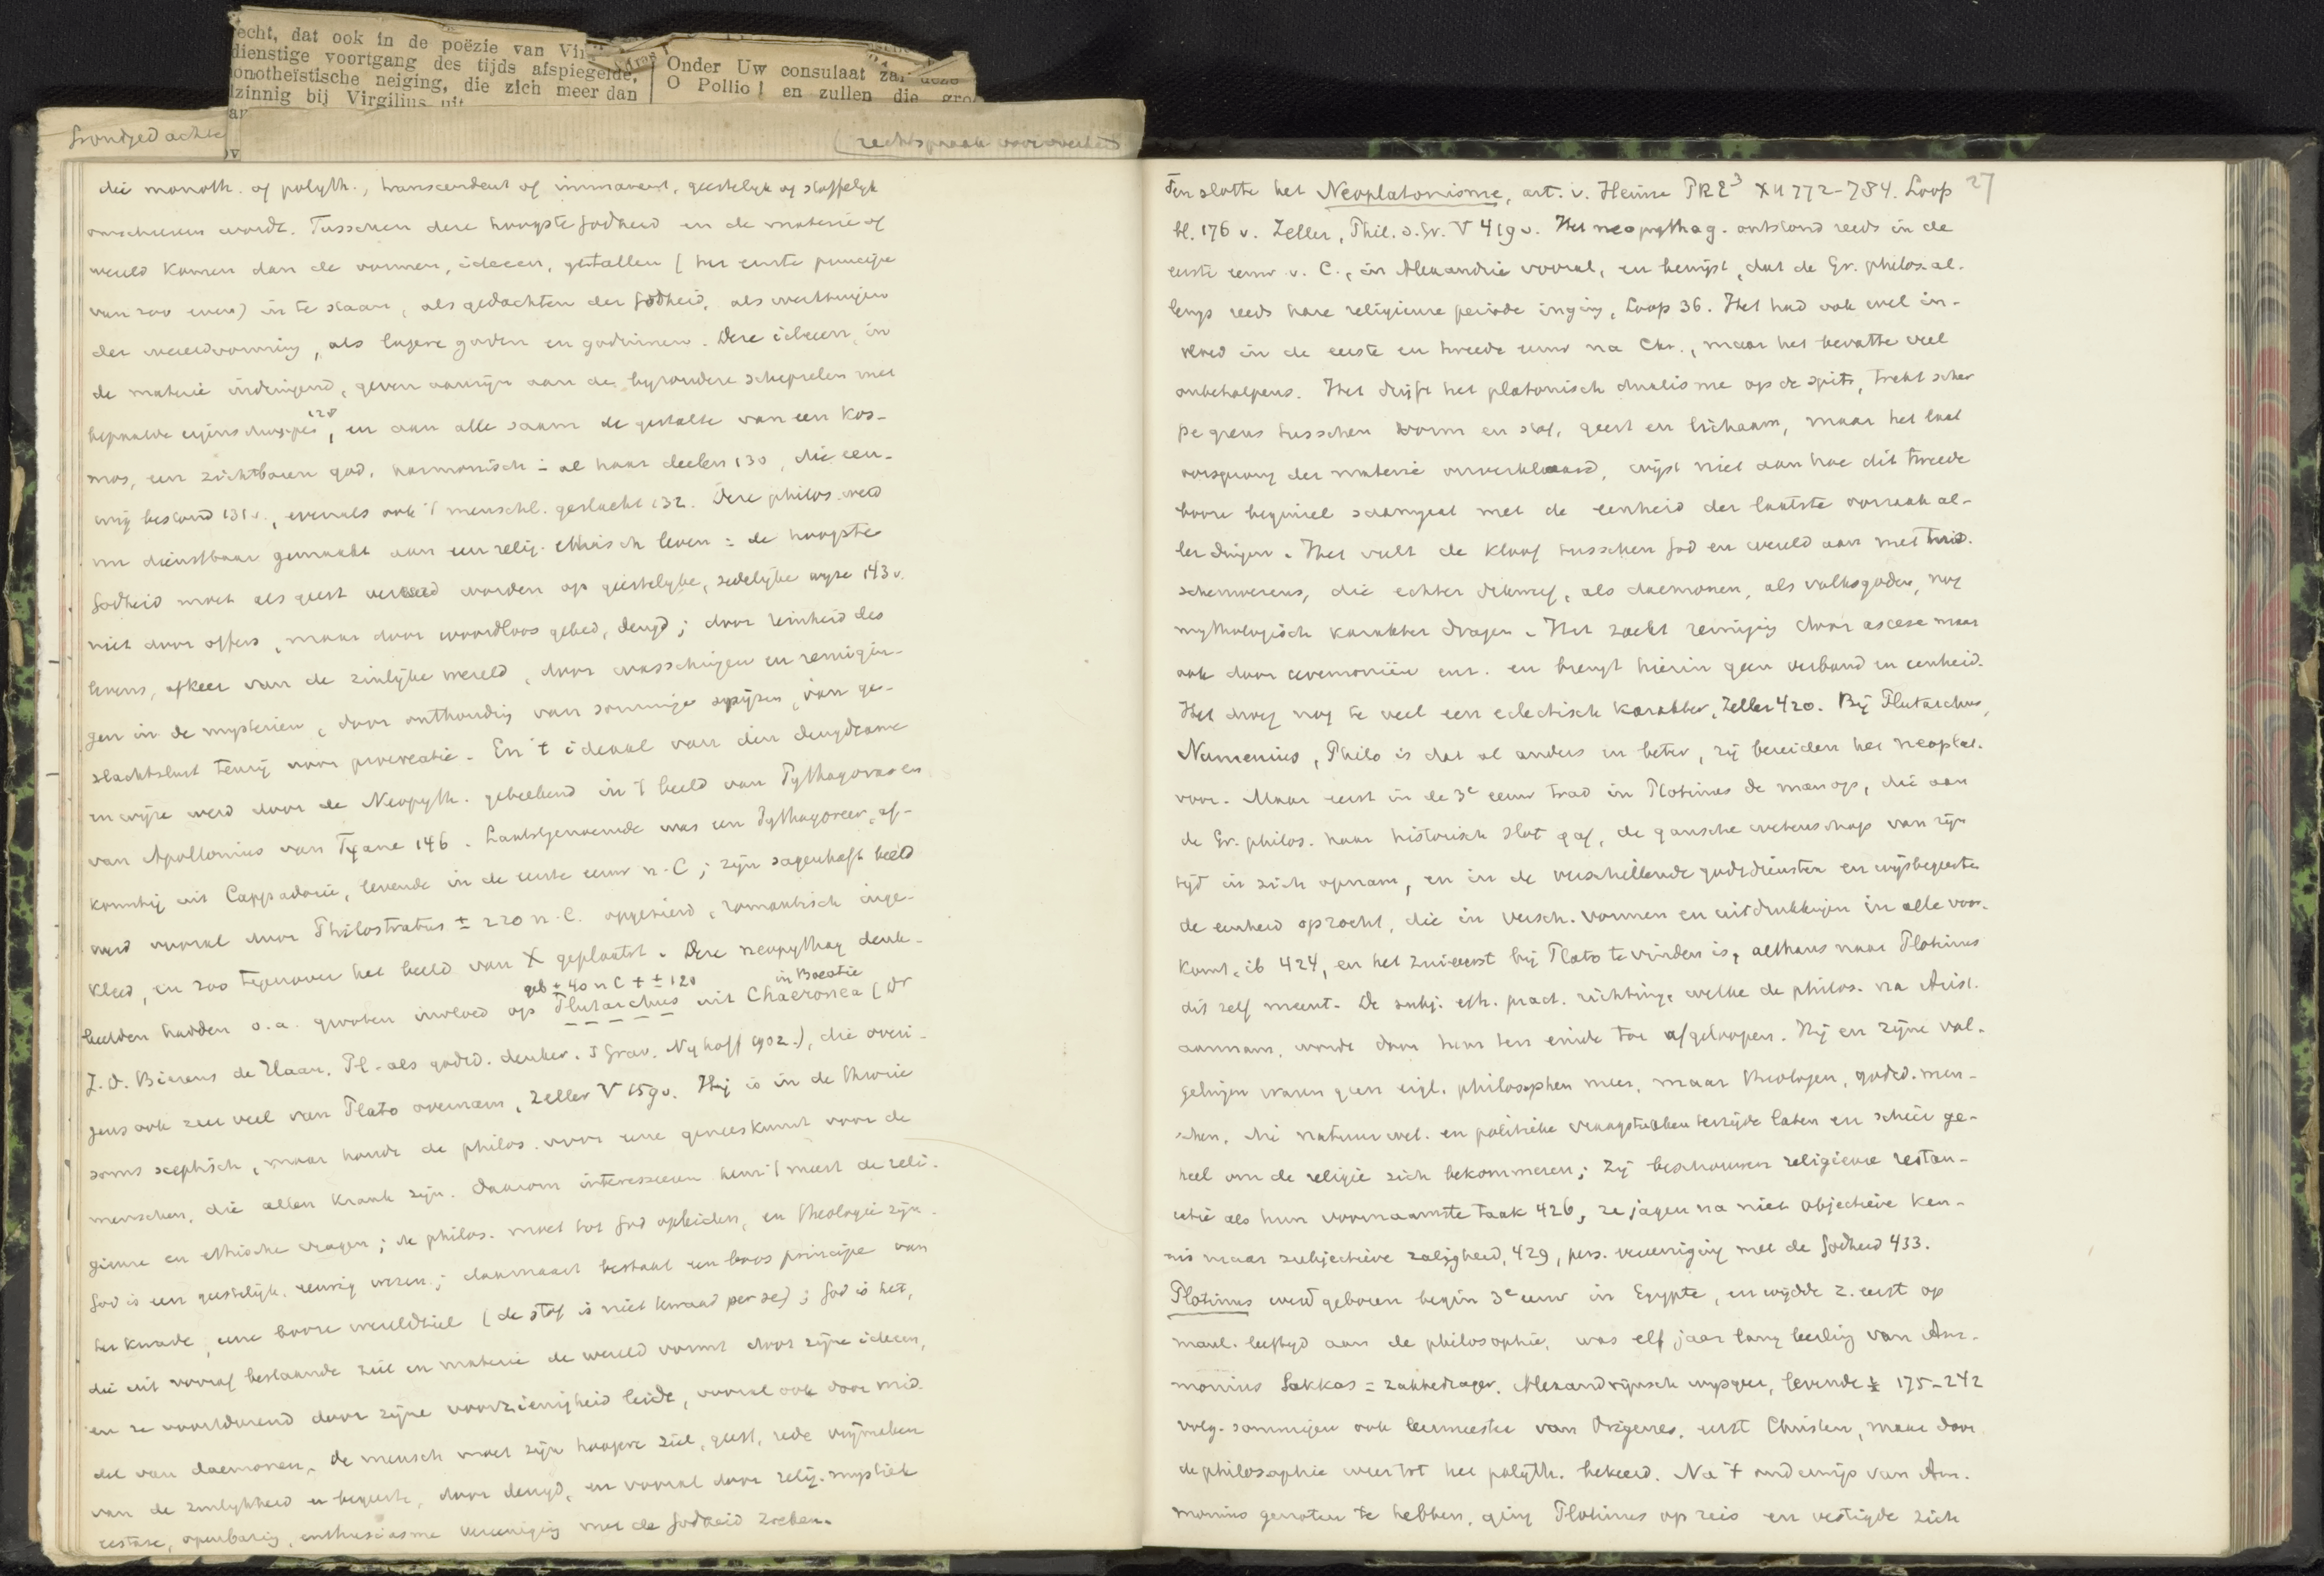 echt, dat ook in de poëzie van Vir
dienstige voortgang des tijds afspiegelde,
onotheïstische neiging, die zich meer dan
lzinnig bij Virgilius uit
Onder Uw consulaat zal deze
O Pollio! en zullen die gro
Grondgedachte
(rechtspraak
die monoth. of polyth., transcendent of immanent, geestelyk of stoffelyk
omschreven wordt. Tusschen deze hoogste Godheid en de materie of
wereld komen dan de vormen, ideeen, getallen (het eerste principe
van 200 even) in te staan, als gedachten der Godheid, als werktuigen
der wereldvorming, als lagere goden en godinnen. Deze ideeen, in
de materie indringend, geven aanzijn aan de byzondere schepselen met
bepaalde eigenschappen 128, en aan alle saam de gestalte van een kos-
mos, een zichtbaren god, harmonisch in al haar deelen 130, die eeu-
wig bestond 131 v., evenals ook 't menschl. geslacht 132. Deze philos. werd
nu dienstbaar gemaakt aan een relig. ethisch leven: de hoogste
Godheid moet als geest vereerd worden op geestelyke, zedelyke wyze 143 v.
niet door offers, maar door woordloos gebed, deugd; door reinheid des
levens, afkeer van de zinlyke wereld, door wasschingen en reinigin-
gen in de mysterien, door onthouding van sommige spijzen, van ge-
slachtslust tenzij voor procreatie. En 't ideaal van den deugdzame
en wijze werd door de Neopyth. gebeeld in 't beeld van Pythagoras en
van Apollonius van Tyana 146. Laatstgenoemde was een Pythagoreer, af-
komstig uit Cappadocië, levende in de eerste eeuw n. C; zijn sagenhaft beeld
werd vooral door Philostratus ± 220 n. C. opgesierd, romantisch inge-
kleed, en zoo tegenover het beeld van X geplaatst. Deze neopythag denk-
geb ± 40 n C + ± 120 in Boeotie
beelden hadden o.a. grooten invloed op Plutarchus uit Chaeronea (Dr
J. D. Bierens de Haan. Pl. als godsd. denker. 's Grav. Nyhoff 1902.), die overi-
gens ook zeer veel van Plato overnam, Zeller V 159 v. Hij is in de theorie
soms sceptisch, maar houdt de philos. voor eene geneeskunst voor de
menschen, die allen krank zijn. Daarom interesseeren hem 't meest de reli-
gieuse en ethische vragen; de philos. moet tot God opleiden, en theologie zijn.
God is een geestelijk, eeuwig wezen; daarnaast bestaat een boos principe van
het kwade, eene booze wereldziel (de stof is niet kwaad per se); God is het,
die uit vooraf bestaande ziel en materie de wereld vormt door zijne ideeen,
en ze voortdurend door zijne voorzienigheid leidt, vooral ook door mid-
del van daemonen. De mensch moet zijn hoogere ziel, geest, rede vrijmaken
van de zinlykheid en begeerte, door deugd, en vooral door relig. mystiek
extase, openbaring, enthusiasme vereeniging met de Godheid zoeken.
27
Ten slotte het Neoplatonisme, art. v. Heinze PRE³ XIII 772-784. Loop
bl. 176 v. Zeller, Phil. d. Gr. V 419 v. Het neopythag. ontstond reeds in de
eerste eeuw v. C., in Alexandrie vooral, en bewijst, dat de Gr. philos. al-
lengs reeds hare religieuse periode inging, Loop 36. Het had ook wel in-
vloed in de eerste en tweede eeuw na Chr., maar het bevatte veel
onbeholpens. Het drijft het platonisch dualisme op de spits, trekt scher
pe grens tusschen vorm en stof, geest en lichaam, maar het laat
oorsprong der materie onverklaard, wijst niet aan hoe dit tweede
booze beginsel samengaat met de eenheid der laatste oorzaak al-
ler dingen. Het vult de kloof tusschen God en wereld aan met tus-
schenwezens, die echter alsnog, als daemonen, als volksgoden, nog
mythologisch karakter dragen. Het zoekt reiniging door ascese maar
ook door ceremoniën enz. en brengt hierin geen verband en eenheid.
Het droeg nog te veel een eclectisch karakter, Zeller 420. Bij Plutarchus,
Numenius, Philo is dat al anders en beter, zij bereiden het neoplat.
voor. Maar eerst in de 3e eeuw trad in Plotinus de man op, die aan
de Gr. philos. haar historisch slot gaf, de gansche wetenschap van zijn
tijd in zich opnam, en in de verschillende godsdiensten en wijsbegeerte
de eenheid opzocht, die in versch. vormen en uitdrukkingen in alle voor-
komt, ib 424, en het zuiverst bij Plato te vinden is, althans naar Plotinus
dit zelf meent. De subj. eth. pract. richting, welke de philos. na Arist.
aannam, wordt door hem ten einde toe afgeloopen. Hij en zijne vol-
gelingen waren geen eigl. philosophen meer, maar theologen, godsd. men-
schen, die natuurwet. en politieke vraagstukken terzijde laten en schier ge-
heel om de religie zich bekommeren; zij beschouwen religieuse restau-
ratie als hun voornaamste taak 426, ze jagen na niet objectieve ken-
nis maar subjectieve zaligheid, 429, pers. vereeniging met de Godheid 433.
Plotinus werd geboren begin 3e eeuw in Egypte, en wijdde z. eerst op
mann. leeftyd aan de philosophie, was elf jaar lang leerling van Am-
monius Sakkas = zakkedrager. Alexandrijnsch wysgeer, levende ± 175-242
volg. sommigen ook leermeester van Origenes, eerst Christen, maar door
de philosophie weer tot het polyth. bekeerd. Na 't onderwijs van Am-
monius genoten te hebben, ging Plotinus op reis en vestigde zich